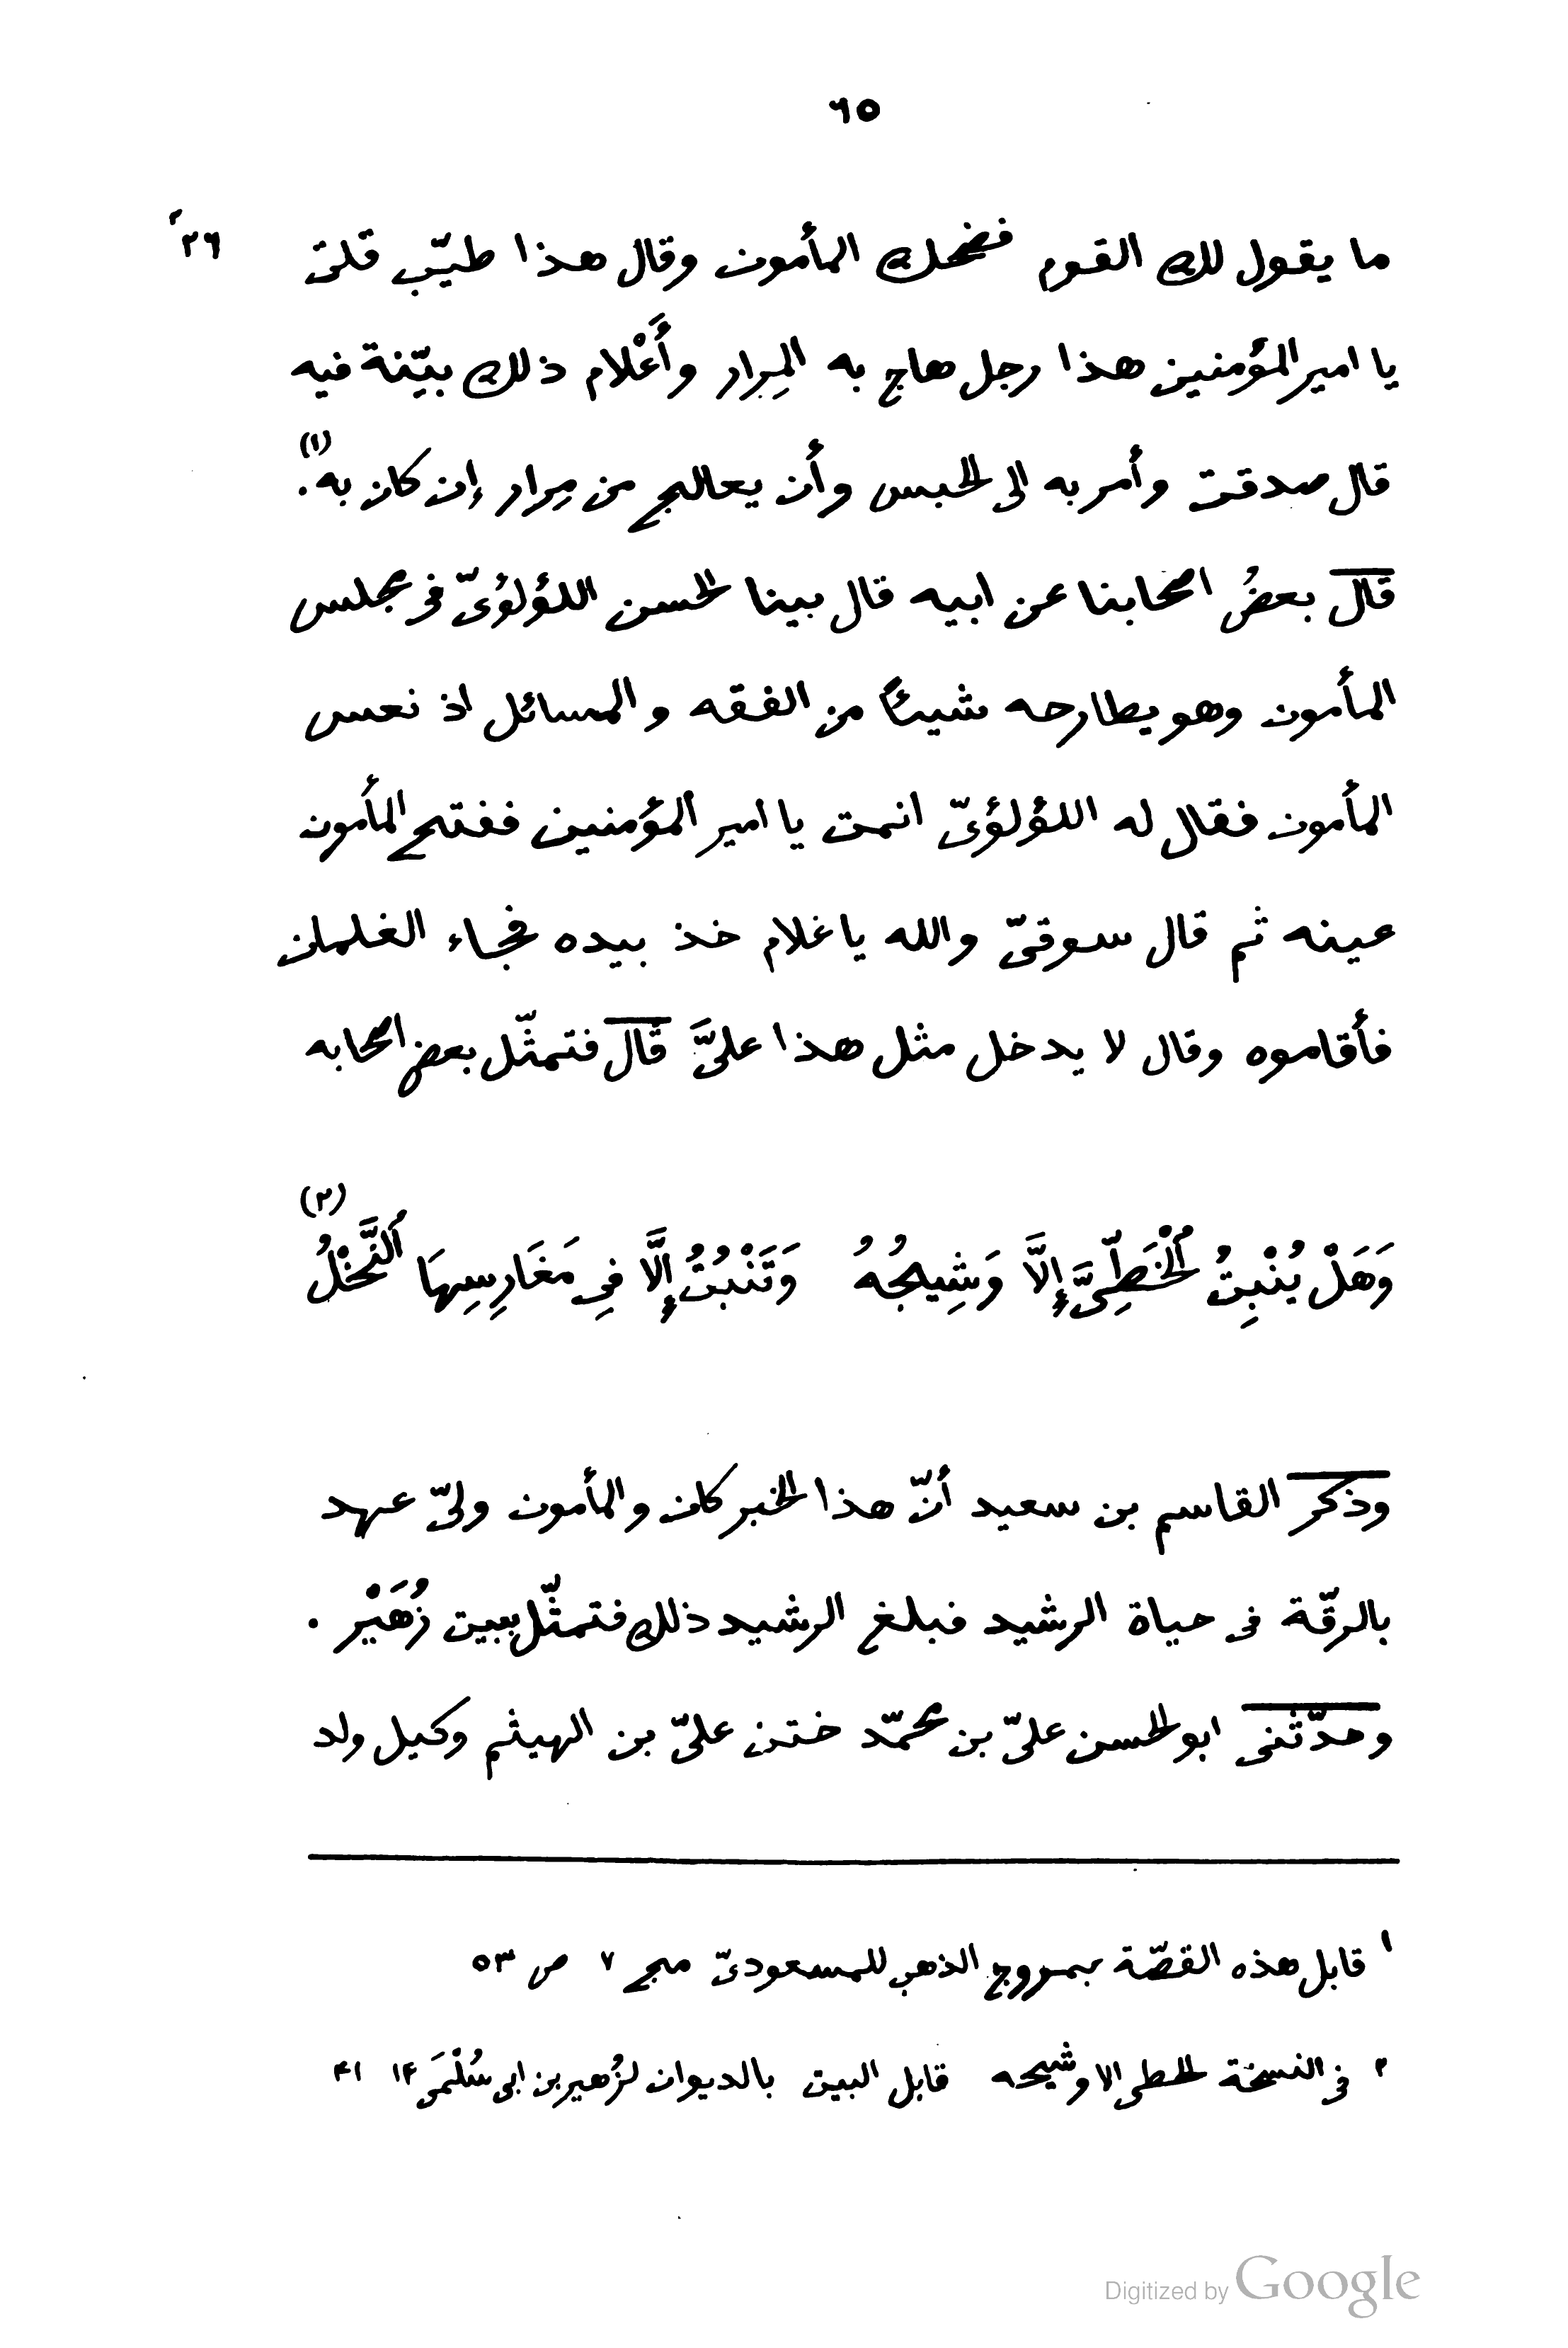 ٦٥
ما يقول لك القوم فضحك المأمون وقال هذا طيّب قلت ٢٦٢
يا امير المؤمنين هذا رجل هاج به المِرار وأَعْلام ذلك بيّنة فيه
قال صدقت وأمر به الى الحبس وأن يعالج من مِرار إن كان به (١).
قال بعضُ اصحابنا عن ابيه قال بينا الحسن اللؤلؤىّ فى مجلس
المأمون وهو يطارحه شيئًا من الفقه والمسائل اذ نعس
المأمون فقال له اللؤلؤىّ انمت يا امير المؤمنين ففتح المأمون
عينه ثم قال سوقىّ والله يا غلام خذ بيده فجاء الغلمان
فأقاموه وقال لا يدخل مثل هذا علىَّ قال فتمثّل بعض اصحابه
وَهَلْ يُنْبِتُ ٱلْخَطِّىَّ إِلَّا وَشِيجُهُ وَتَنْبُتُ إِلَّا فِى مَغَارِسِهَا ٱلنَّخْلُ (٢)
وذكر القاسم بن سعيد أنّ هذا الخبر كان والمأمون ولىّ عهد
بالرقّة فى حياة الرشيد فبلغ الرشيد ذلك فتمثّل ببيت زُهَيْر .
وحدّثنى ابو الحسن علىّ بن محمّد ختن علىّ بن الهيثم وكيل ولد
١ قابل هذه القصّة بمروج الذهب للمسعودىّ مج ٧ ص ٥٣
٢ فى النسخة الحطى الا وشيحه قابل البيت بالديوان لزُهير بن ابى سُلْمَى ١۴ ۴١
Digitized by Google